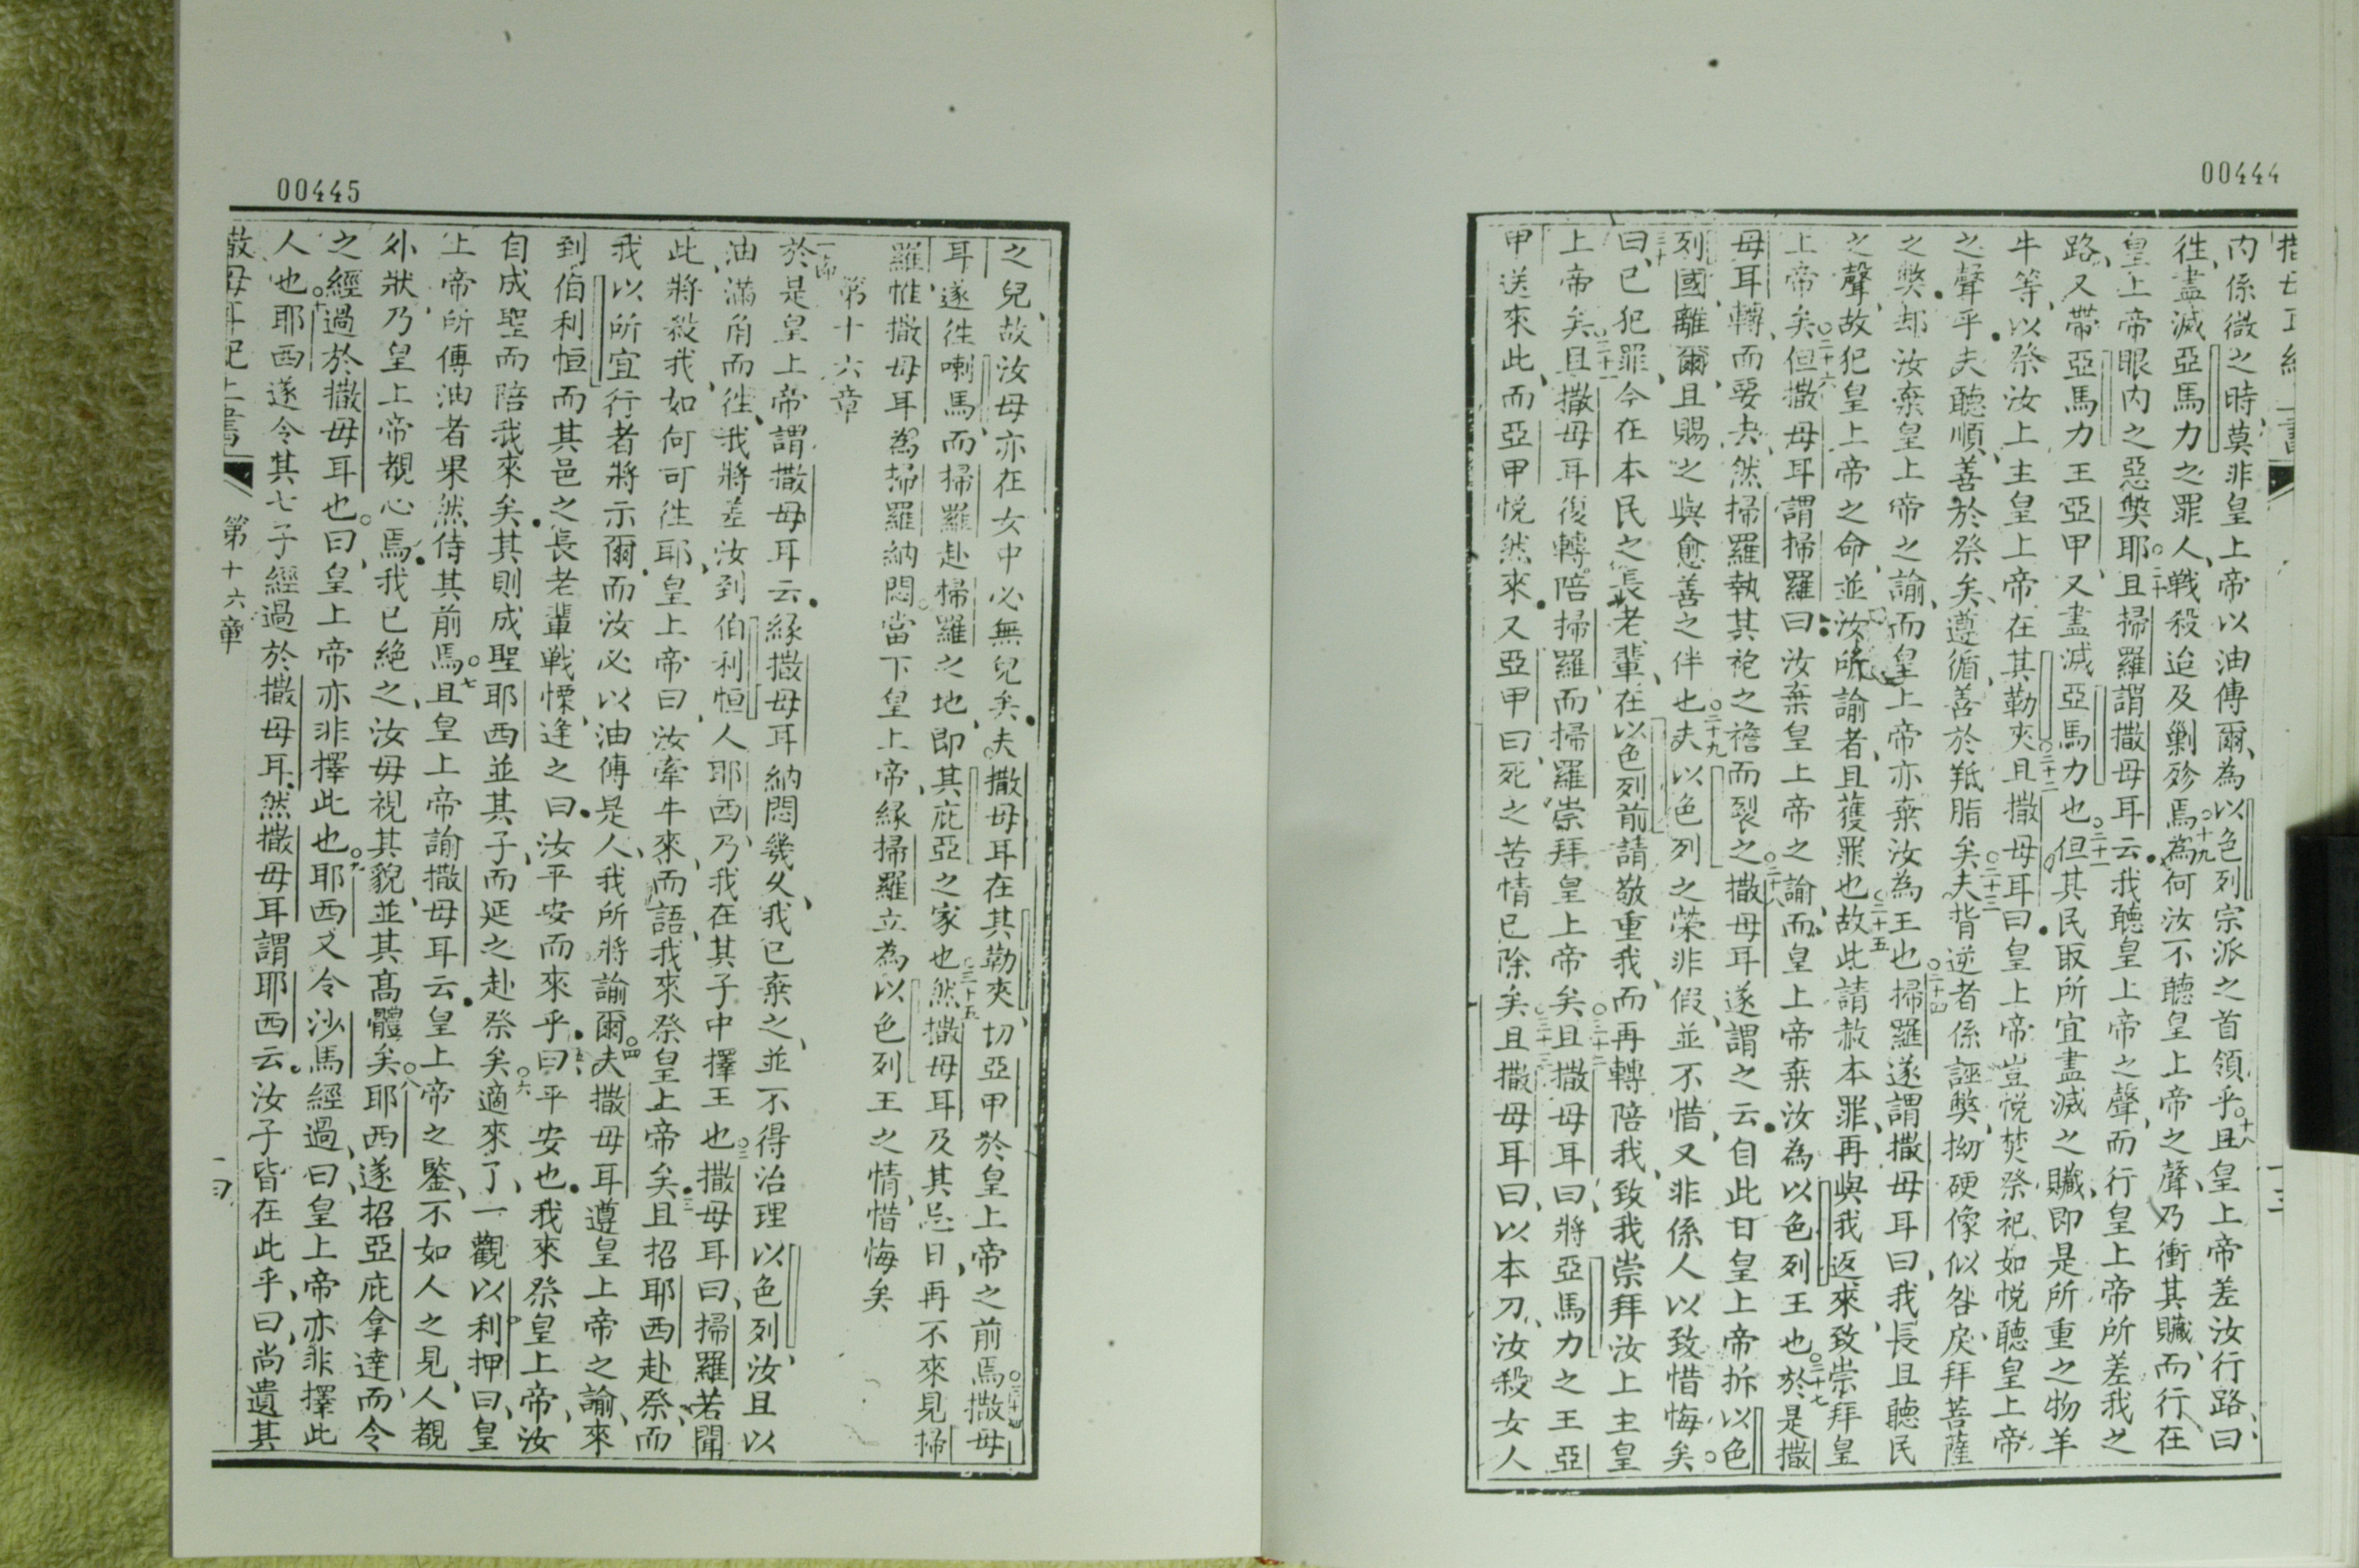 00444
內係微之時莫非皇上帝以油傅爾為以色列宗派之首領乎○十八且皇上帝差汝行路曰
徃盡滅亞馬力之罪人戰殺迨及剿殄焉○十九為何汝不聽皇上帝之聲乃衝其贜而行在
皇上帝眼內之惡獘耶○二十且掃羅謂撒母耳云我聽皇上帝之聲而行皇上帝所差我之
路又帶亞馬力王亞甲又盡滅亞馬力也○二十一但其民取所宜盡滅之贜即是所重之物羊
牛等以祭汝上主皇上帝在其勒夾○二十二且撒母耳曰皇上帝豈悅焚祭祀如悅聽皇上帝
之聲乎夫聽順善於祭矣遵循善於羝脂矣○二十三夫背逆者係誣獘拗硬像似咎戾拜菩薩
之獘却汝棄皇上帝之諭而皇上帝亦棄汝為王也○二十四掃羅遂謂撒母耳曰我長且聽民
之聲故犯皇上帝之命並汝所諭者且獲罪也○二十五故此請赦本罪再與我返來致崇拜皇
上帝矣○二十六但撒母耳謂掃羅曰汝棄皇上帝之諭而皇上帝棄汝為以色列王也○二十七於是撒
母耳轉而要去然掃羅執其袍之襜而裂之○二十八撒母耳遂謂之云自此日皇上帝拆以色
列國離爾且賜之與愈善之伴也○二十九夫以色列之榮非假並不惜又非係人以致惜悔矣○
三十曰已犯罪今在本民之長老輩在以色列前請敬重我而再轉陪我致我崇拜汝上主皇
上帝矣○三十一且撒母耳復轉陪掃羅而掃羅崇拜皇上帝矣○三十二且撒母耳曰將亞馬力之王亞
甲送來此而亞甲悅然來又亞甲曰死之苦情已除矣○三十三且撒母耳曰以本刀汝殺女人
00445
之兒故汝母亦在女中必無兒矣夫撒母耳在其勒夾切亞甲於皇上帝之前焉○三十四撒母
耳遂徃喇馬而掃羅赴掃羅之地即其庇亞之家也○三十五然撒母耳及其忌日再不來見掃
羅惟撒母耳為掃羅納悶當下皇上帝緣掃羅立為以色列王之情惜悔矣
第十六章
一節於是皇上帝謂撒母耳云緣撒母耳納悶幾久我已棄之並不得治理以色列汝且以
油滿角而徃我將差汝到伯利恒人耶西乃我在其子中擇王也○二撒母耳曰掃羅若聞
此將殺我如何可徃耶皇上帝曰汝牽牛來而語我來祭皇上帝矣○三且招耶西赴祭而
我以所宜行者將示爾而汝必以油傅是人我所將諭爾○四夫撒母耳遵皇上帝之諭來
到伯利恒而其邑之長老輩戰慄逢之曰汝平安而來乎○五曰平安也我來祭皇上帝汝
自成聖而陪我來矣其則成聖耶西並其子而延之赴祭矣○六適來了一觀以利押曰皇
上帝所傅油者果然侍其前焉○七且皇上帝諭撒母耳云皇上帝之鑒不如人之見人觀
外狀乃皇上帝覩心焉我已絕之汝毋視其貌並其高體矣○八耶西遂招亞庇拿達而令
之經過於撒母耳也○曰皇上帝亦非擇此也○九耶西又令沙馬經過曰皇上帝亦非擇此
人也○十耶西遂令其七子經過於撒母耳然撒母耳謂耶西云汝子皆在此乎曰尚遺其
撒母耳記上書 第十六章